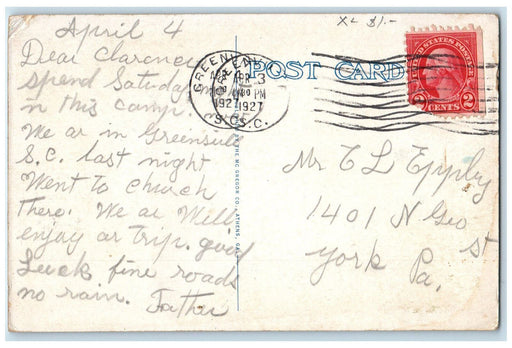 XL $1.-
April 4
Dear Clarence
spend Saturday
in this camp
We ar in Greensville
S.C. last night
Went to church
there. We ar Well
enjoy ar trip. good
Luck fine roads
no rain. Father
POST CARD
GREENVILLE
APR 3
PM
1927
S.C.
UNITED STATES POSTAGE
2 CENTS 2
THE McGREGOR CO., ATHENS, GA.
Mr C L Eppley
1401 N Geo
st
York Pa.